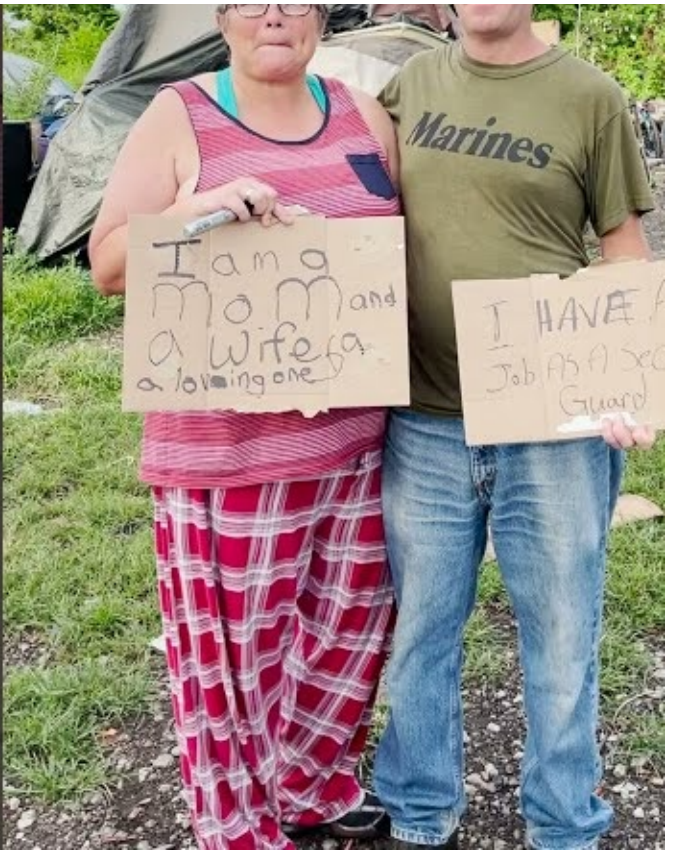 Marines
I am a
MoM and
a wife &a
a loving one
I HAVE A
Job AS A Sec
Guard